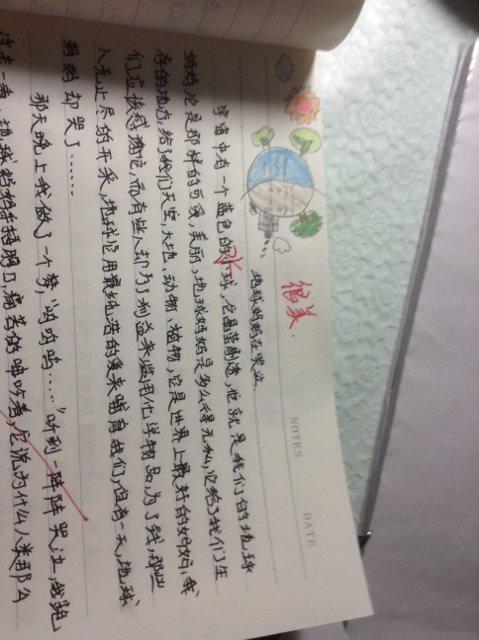 NOTES DATE
很美.
地球妈妈在哭泣
宇宙中有一个蓝色的球,它晶莹剔透,也就是我们的地球
妈妈,它是那样的可爱,美丽,地球妈妈是多么得无私,它给了我们生
存的地方,给了我们天空,大地,动物,植物,它是世界上最好的妈妈,我
们应该感谢它,而有些人却为了利益来滥用化学物品,为了钱,那些
人无止尽的开采,地球用最纯洁的爱来哺育我们,但有一天,地球
妈妈却哭了……
那天晚上我做了一个梦,“呜呜呜……”听到一阵阵哭泣,我跑
过去一看,地球妈妈捂胸口,痛苦的呻吟着,它说为什么人类那么